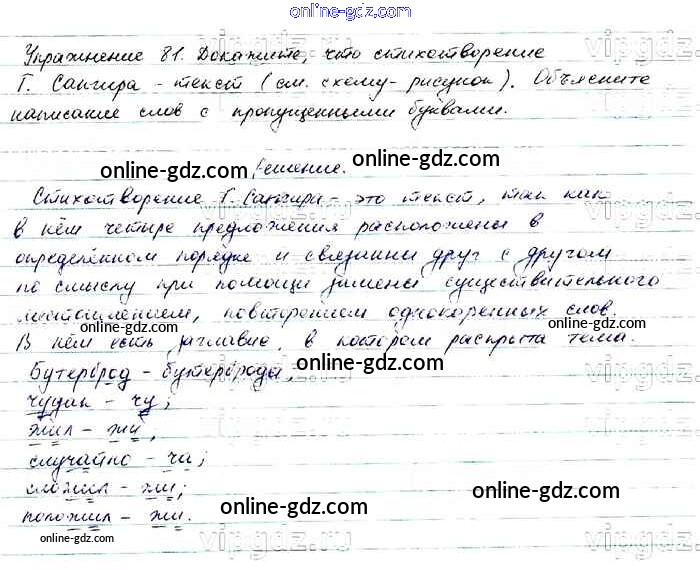 online-gdz.com
Упражнение 81. Докажите, что стихотворение
Г. Сапгира - текст (см. схему - рисунок). Объясните
написание слов с пропущенными буквами.
online-gdz.com
online-gdz.com
Решение.
Стихотворение Г. Сапгира - это текст, так как
в нём четыре предложения расположены в
определённом порядке и связанны друг с другом
по смыслу при помощи замены существительного
местоимением, повторением однокоренных слов.
online-gdz.com
online-gdz.com
В нём есть заглавие, в котором раскрыта тема.
online-gdz.com
Бутерброд - бутерброды,
чудак - чу;
жил - жи;
случайно - ча;
сложил - жи;
положил - жи.
online-gdz.com
online-gdz.com
online-gdz.com
vipgdz.ru